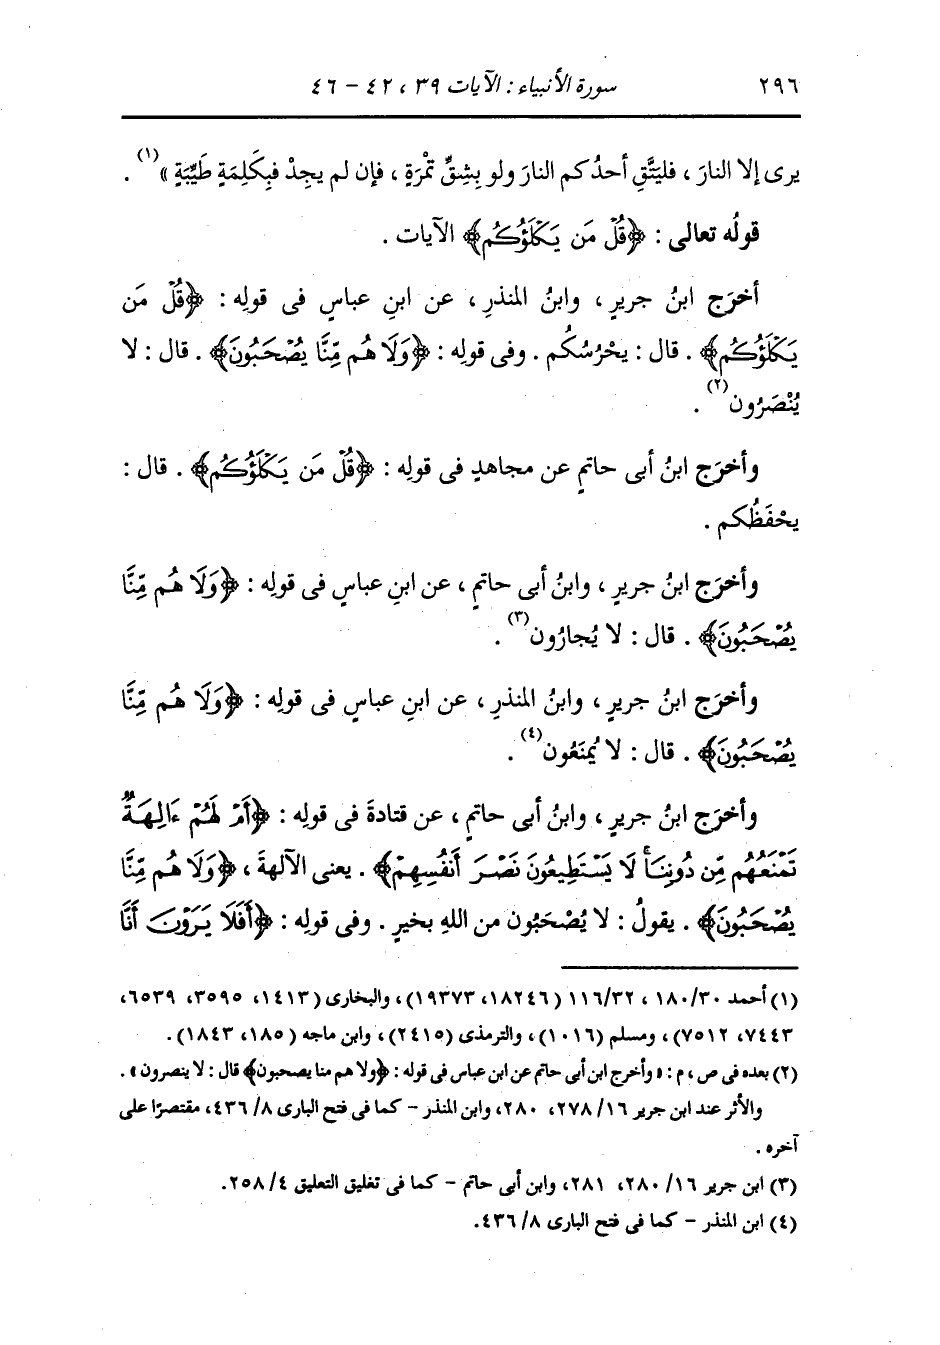 ٢٩٦ سورة الأنبياء : الآيات ٣٩ ، ٤٢ - ٤٦
يرى إلا النارَ ، فليَتَّقِ أحدُكم النارَ ولو بِشِقِّ تمْرَةٍ ، فإن لم يجِدْ فبِكَلِمَةٍ طَيِّبَةٍ »(١) .
قولُه تعالى : ﴿قُلْ مَن يَكْلَؤُكُم﴾ الآيات .
أخرَج ابنُ جريرٍ ، وابنُ المنذرِ ، عن ابنِ عباسٍ فى قولِه : ﴿قُلْ مَن
يَكْلَؤُكُم﴾ . قال : يحْرُسُكُم . وفى قولِه : ﴿وَلَا هُم مِّنَّا يُصْحَبُونَ﴾ . قال : لا
يُنْصَرُون(٢) .
وأخرَج ابنُ أبى حاتمٍ عن مجاهدٍ فى قولِه : ﴿قُلْ مَن يَكْلَؤُكُم﴾ . قال :
يحْفَظُكم .
وأخرَج ابنُ جريرٍ ، وابنُ أبى حاتمٍ ، عن ابنِ عباسٍ فى قولِه : ﴿وَلَا هُم مِّنَّا
يُصْحَبُونَ﴾ . قال : لا يُجارُون(٣) .
وأخرَج ابنُ جريرٍ ، وابنُ المنذرِ ، عن ابنِ عباسٍ فى قولِه : ﴿وَلَا هُم مِّنَّا
يُصْحَبُونَ﴾ . قال : لا يُمنَعُون(٤) .
وأخرَج ابنُ جريرٍ ، وابنُ أبى حاتمٍ ، عن قتادةَ فى قولِه : ﴿أَمْ لَهُمْ ءَالِهَةٌ
تَمْنَعُهُم مِّن دُونِنَاۚ لَا يَسْتَطِيعُونَ نَصْرَ أَنفُسِهِمْ﴾ . يعنى الآلهةَ ، ﴿وَلَا هُم مِّنَّا
يُصْحَبُونَ﴾ . يقولُ : لا يُصْحَبُون من اللهِ بخيرٍ . وفى قولِه : ﴿أَفَلَا يَرَوْنَ أَنَّا
(١) أحمد ٣٠/ ١٨٠ ، ٣٢/ ١١٦ (١٨٢٤٦، ١٩٣٧٣)، والبخارى (١٤١٣، ٣٥٩٥، ٦٥٣٩،
٧٤٤٣، ٧٥١٢)، ومسلم (١٠١٦)، والترمذى (٢٤١٥)، وابن ماجه (١٨٥، ١٨٤٣).
(٢) بعده فى ص ، م : « وأخرج ابن أبى حاتم عن ابن عباس فى قوله : ﴿ولا هم منا يصحبون﴾ قال : لا ينصرون » .
والأثر عند ابن جرير ١٦/ ٢٧٨، ٢٨٠، وابن المنذر - كما فى فتح البارى ٨/ ٤٣٦، مقتصرًا على
آخره .
(٣) ابن جرير ١٦/ ٢٨٠، ٢٨١، وابن أبى حاتم - كما فى تغليق التعليق ٤/ ٢٥٨.
(٤) ابن المنذر - كما فى فتح البارى ٨/ ٤٣٦.